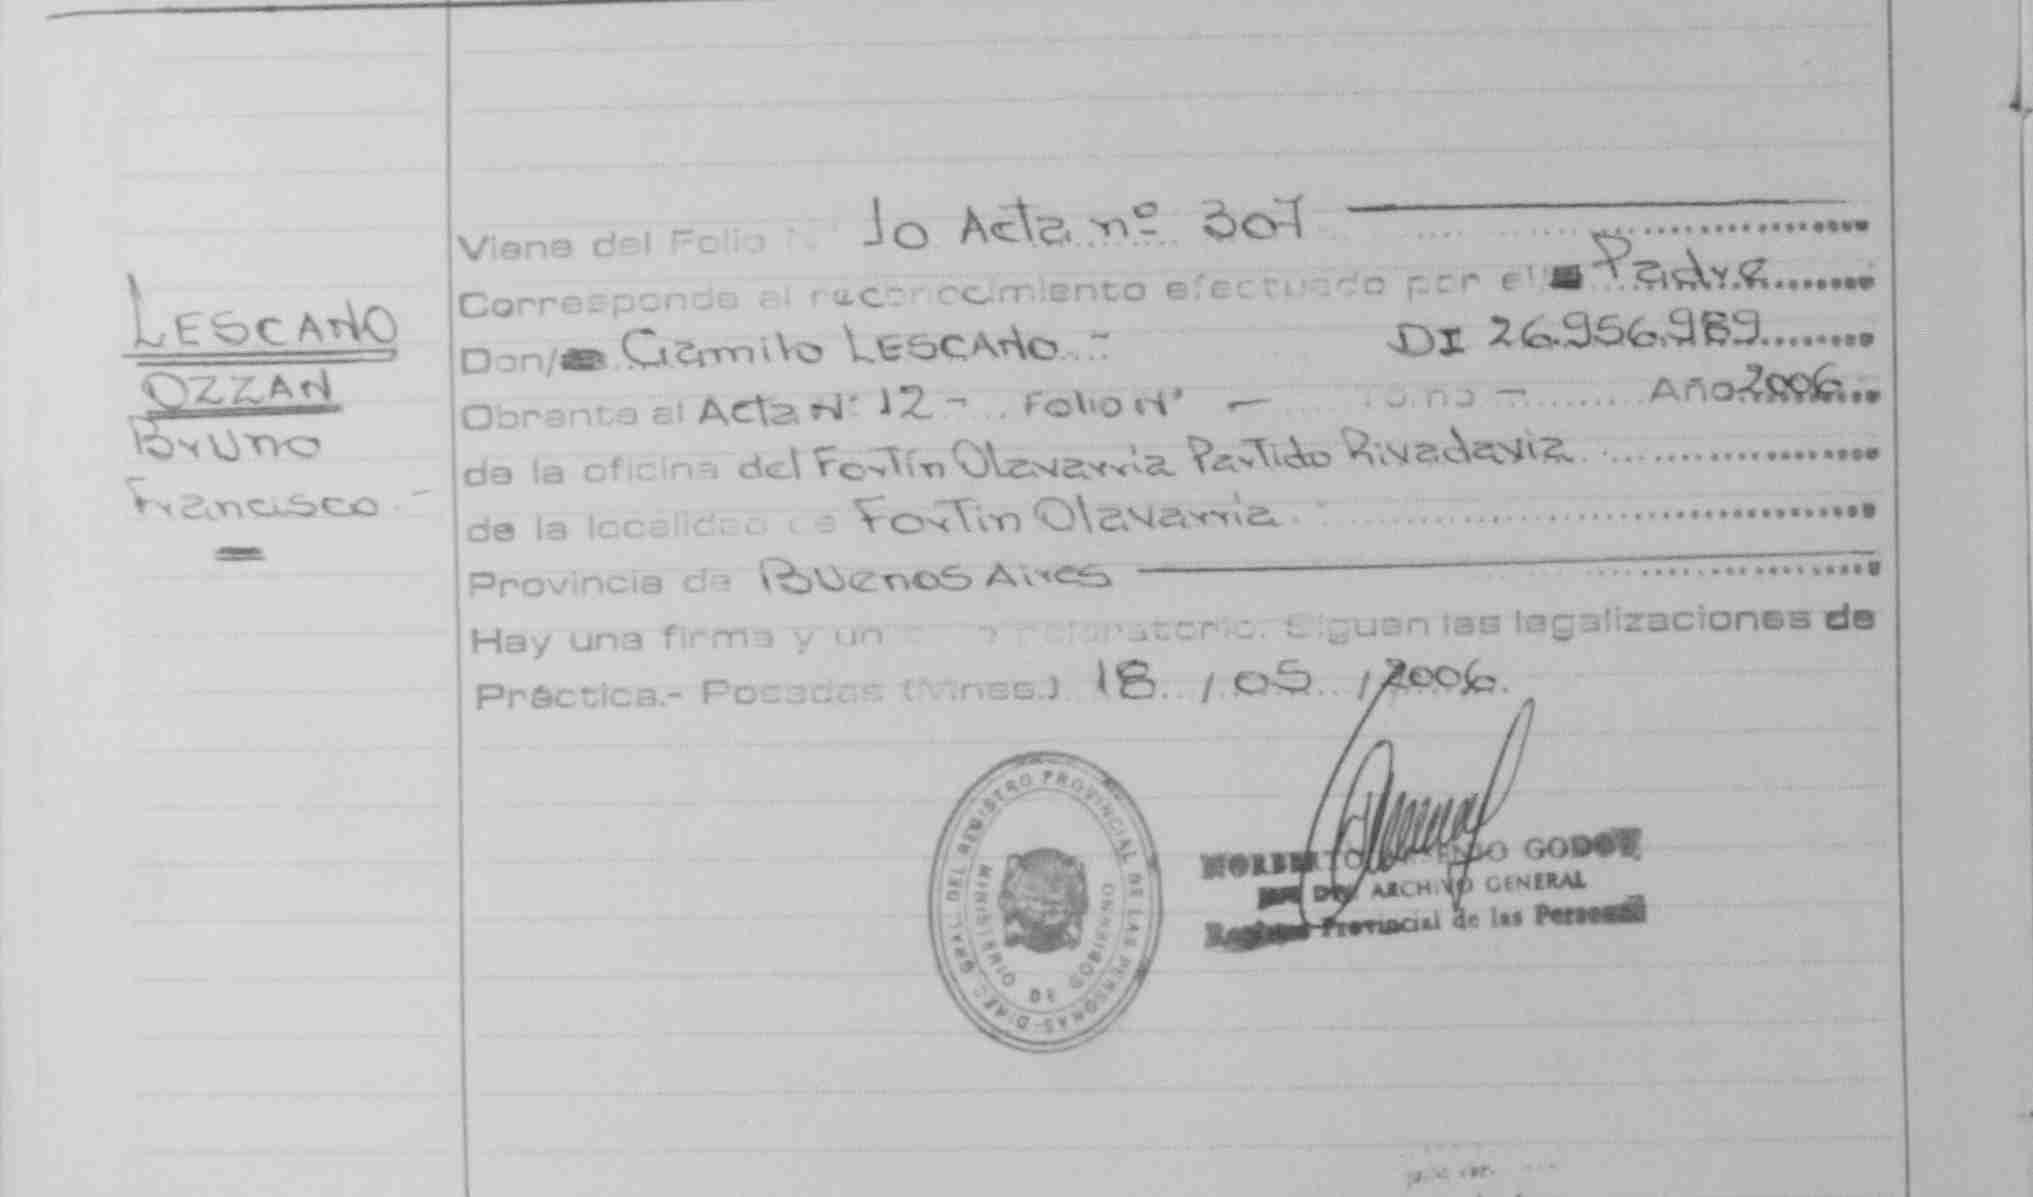 LESCANO
OZZAN
Bruno
Francisco -
Viene del Folio N° 10 Acta nº 307
Corresponde al reconocimiento efectuado por el Padre
Don/ Camilo LESCANO.- DI 26.956.989
Obrante al Acta Nº 12 - Folio Nº - Tomo - Año 2006
de la oficina del Fortín Olavarria Partido Rivadavia
de la localidad de Fortin Olavarria
Provincia de Buenos Aires
Hay una firma y un aclaratorio. Siguen las legalizaciones de
Práctica.- Posadas (Mnes.) 18 / 05 / 2006.
DIREC. GRAL. DEL REGISTRO PROVINCIAL DE LAS PERSONAS
MINISTERIO DE GOBIERNO
NORBERTO GODOY
DEL ARCHIVO GENERAL
Registro Provincial de las Personas